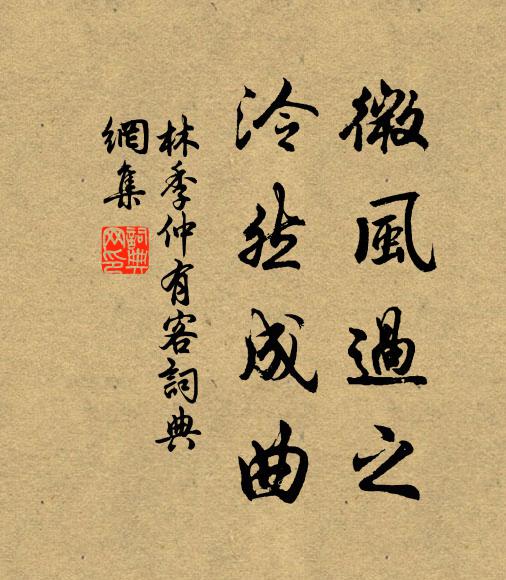 微風過之
泠然成曲
林季仲有客詞典
網集
詞典
网印